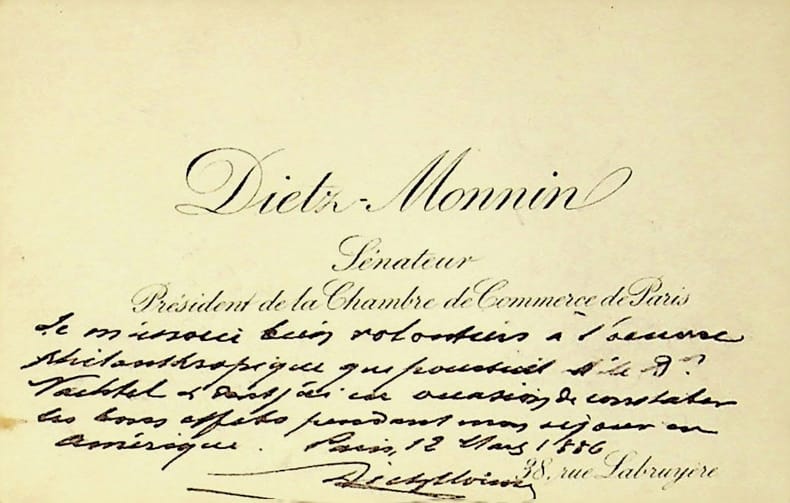 Dietz-Monnin
Sénateur
Président de la Chambre de Commerce de Paris
Je m'associe bien volontiers à l'oeuvre
philanthropique que poursuit M. le Dr.
et dont j'ai eu occasion de constater
les bons effets pendant mon séjour en
Amérique. Paris, 12 Mars 1886
Dietz Monnin
38, rue Labruyère